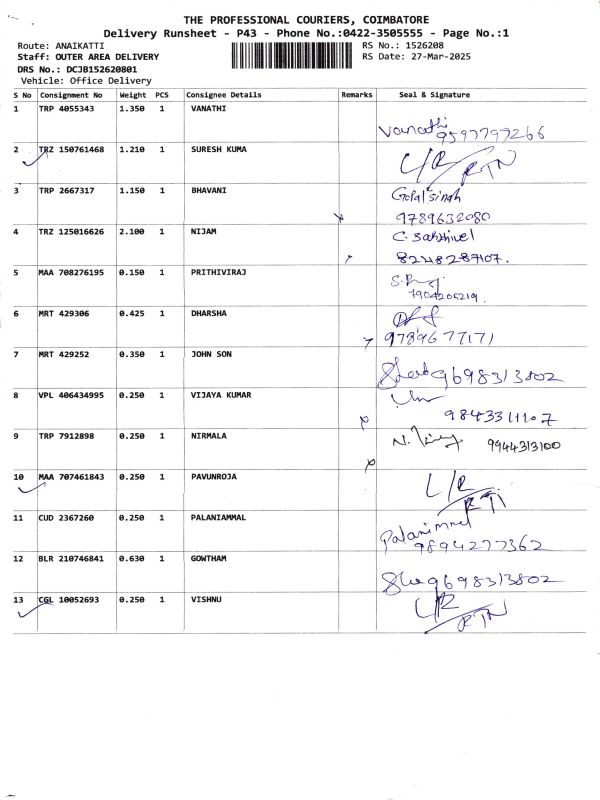 THE PROFESSIONAL COURIERS, COIMBATORE
Delivery Runsheet - P43 - Phone No.:0422-3505555 - Page No.:1
Route: ANAIKATTI RS No.: 1526208
Staff: OUTER AREA DELIVERY RS Date: 27-Mar-2025
DRS No.: DCJB152620801
Vehicle: Office Delivery
S No Consignment No Weight PCS Consignee Details Remarks Seal & Signature
1 TRP 4055343 1.350 1 VANATHI
Vanathi
9597797266
2 TRZ 150761468 1.210 1 SURESH KUMA L/R RTN
3 TRP 2667317 1.150 1 BHAVANI Gopal singh
9789632080
4 TRZ 125016626 2.100 1 NIJAM C. Sakthivel
8248289107.
5 MAA 708276195 0.150 1 PRITHIVIRAJ
7904205219.
6 MRT 429306 0.425 1 DHARSHA
9789677171
7 MRT 429252 0.350 1 JOHN SON
9698313802
8 VPL 406434995 0.250 1 VIJAYA KUMAR
9843311107
9 TRP 7912898 0.250 1 NIRMALA 9944313100
10 MAA 707461843 0.250 1 PAVUNROJA L/R
11 CUD 2367260 0.250 1 PALANIAMMAL
9894277362
12 BLR 210746841 0.630 1 GOWTHAM
9698313802
13 CGL 10052693 0.250 1 VISHNU L/R RTN